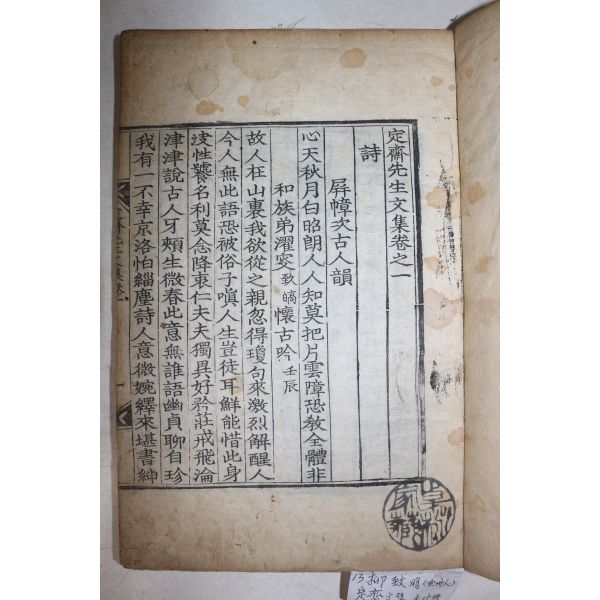 定齋先生文集卷之一
詩
屛幛次古人韻
心天秋月白昭朗人人知莫把片雲障恐敎全體非
和族弟濯安致皜懷古吟壬辰
故人在山裏我欲從之親忽得瓊句來激烈解醒人
今人無此語恐被俗子嗔人生豈徒耳鮮能惜此身
淺性饕名利莫念降衷仁夫夫獨異好矜莊戒飛淪
津津說古人牙頰生微春此意無誰語幽貞聊自珍
我有一不幸京洛怕緇塵詩人意微婉繹來堪書紳